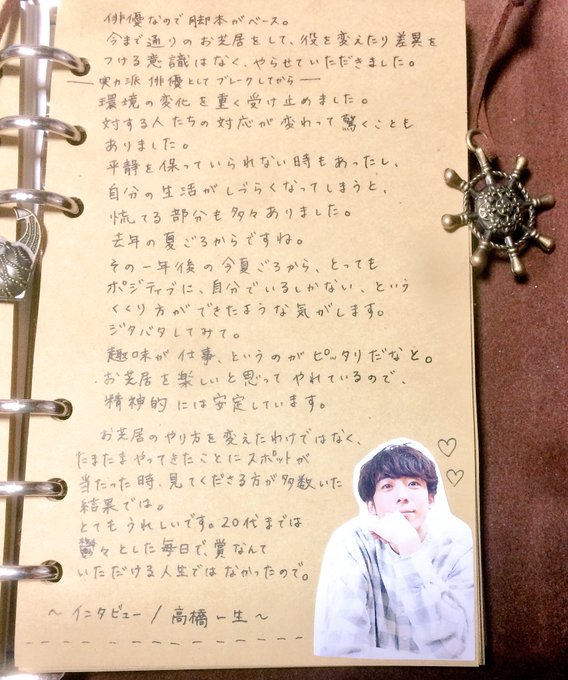 俳優なので脚本がベース。
今まで通りのお芝居をして、役を変えたり差異を
つける意識はなく、やらせていただきました。
―実力派俳優としてブレークしてから―
環境の変化を重く受け止めました。
対する人たちの対応が変わって驚くことも
ありました。
平静を保っていられない時もあったし、
自分の生活がしづらくなってしまうと、
慌てる部分も多々ありました。
去年の夏ごろからですね。
その一年後の今夏ごろから、とっても
ポジティブに、自分でいるしかない、という
くくり方ができたような気がします。
ジタバタしてみて。
趣味が仕事、というのがピッタリだなと。
お芝居を楽しいと思ってやれているので、
精神的には安定しています。
お芝居のやり方を変えたわけではなく、
たまたまやってきたことにスポットが
当たった時、見てくださる方が多数いた
結果では。
とてもうれしいです。20代までは
鬱々とした毎日で、賞なんて
いただける人生ではなかったので。
～インタビュー/高橋一生～